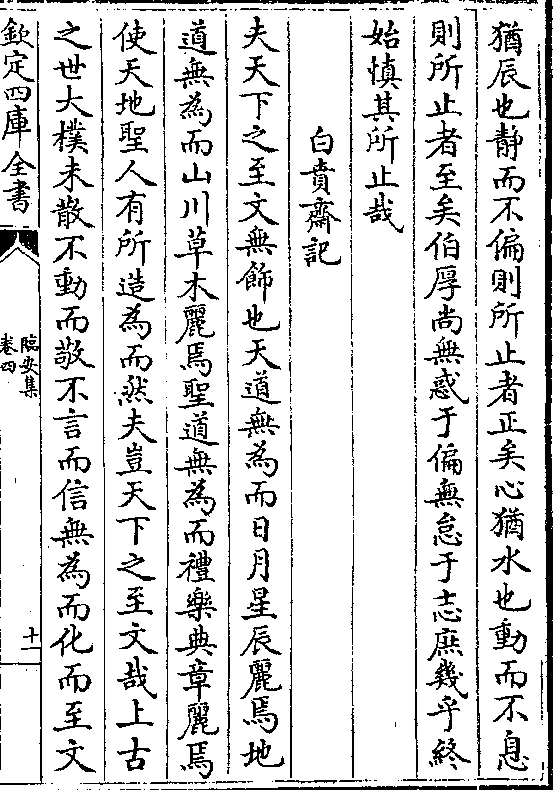 猶辰也静而不偏則所止者正矣心猶水也動而不息
則所止者至矣伯厚尚無惑于偏無怠于志庶幾乎終
始慎其所止哉
白賁齋記
夫天下之至文無飾也天道無為而日月星辰麗焉地
道無為而山川草木麗焉聖道無為而禮樂典章麗焉
使天地聖人有所造為而然夫豈天下之至文哉上古
之世大樸未散不動而敬不言而信無為而化而至文
欽定四庫全書
臨安集
卷四
十一